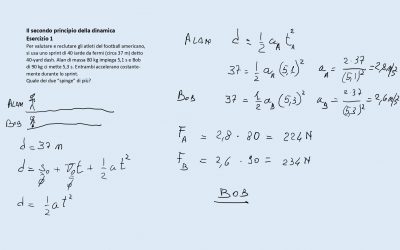 Il secondo principio della dinamica
Esercizio 1
Per valutare e reclutare gli atleti del football americano,
si usa uno sprint di 40 iarde da fermi (circa 37 m) detto
40-yard dash. Alan di massa 80 kg impiega 5,1 s e Bob
di 90 kg ci mette 5,3 s. Entrambi accelerano costante-
mente durante lo sprint.
Quale dei due "spinge" di più?
ALAN
BOB
d = 37 m
d = s₀ + v₀t + 1/2 a t²
0 0
d = 1/2 a t²
ALAN d = 1/2 a_A t_A²
37 = 1/2 a_A (5,1)² a_A = 2·37/(5,1)² = 2,8 m/s²
BOB 37 = 1/2 a_B (5,3)² a_B = 2·37/(5,3)² = 2,6 m/s²
F_A = 2,8 · 80 = 224 N
F_B = 2,6 · 90 = 234 N
BOB